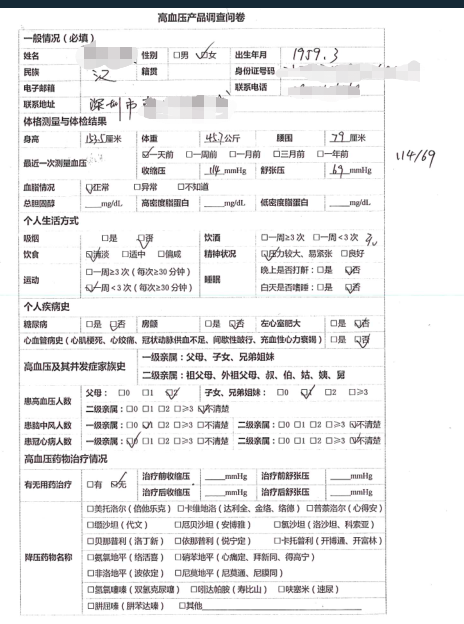 高血压产品调查问卷
一般情况（必填）
姓名 性别 □男 ☑女 出生年月 1959.3
民族 汉 籍贯 身份证号码
电子邮箱 联系电话
联系地址 深圳市
体格测量与体检结果
身高 153.5厘米 体重 45.7公斤 腰围 79厘米
最近一次测量血压 ☑一天前 □一周前 □一月前 □三月前 □一年前
收缩压 114 mmHg 舒张压 69 mmHg 114/69
血脂情况 ☑正常 □异常 □不知道
总胆固醇 ____mg/dL 高密度脂蛋白 ____mg/dL 低密度脂蛋白 ____mg/dL
个人生活方式
吸烟 □是 ☑否 饮酒 □一周≥3次 □一周<3次
饮食 ☑清淡 □适中 □偏咸 精神状况 ☑压力较大、易紧张 □良好
运动 □一周≥3次（每次≥30分钟） 睡眠 晚上是否打鼾：□是 ☑否
☑一周<3次（每次≥30分钟） 白天是否嗜睡：□是 ☑否
个人疾病史
糖尿病 □是 ☑否 房颤 □是 ☑否 左心室肥大 □是 ☑否
心血管病史（心肌梗死、心绞痛、冠状动脉供血不足、间歇性跛行、充血性心力衰竭） □是 ☑否
高血压及其并发症家族史 一级亲属：父母、子女、兄弟姐妹
二级亲属：祖父母、外祖父母、叔、伯、姑、姨、舅
患高血压人数 父母：□0 □1 ☑2 子女、兄弟姐妹：□0 ☑1 □2 □≥3
二级亲属：□0 □1 □2 □≥3 ☑不清楚
患脑中风人数 一级亲属：□0 ☑1 □2 □≥3 □不清楚 二级亲属：□0 □1 □2 □≥3 ☑不清楚
患冠心病人数 一级亲属：☑0 □1 □2 □≥3 □不清楚 二级亲属：□0 □1 □2 □≥3 ☑不清楚
高血压药物治疗情况
有无用药治疗 □有 ☑无 治疗前收缩压 ____mmHg 治疗前舒张压 ____mmHg
治疗后收缩压 ____mmHg 治疗后舒张压 ____mmHg
降压药物名称 □美托洛尔（倍他乐克） □卡维地洛（达利全、金络、络德） □普萘洛尔（心得安）
□缬沙坦（代文） □厄贝沙坦（安博维） □氯沙坦（洛沙坦、科索亚）
□贝那普利（洛丁新） □依那普利（悦宁定） □卡托普利（开博通、开富林）
□氨氯地平（络活喜） □硝苯地平（心痛定、拜新同、得高宁）
□非洛地平（波依定） □尼莫地平（尼莫通、尼膜同）
□氢氯噻嗪（双氢克尿噻） □吲达帕胺（寿比山） □呋塞米（速尿）
□肼屈嗪（肼苯达嗪） □其他____